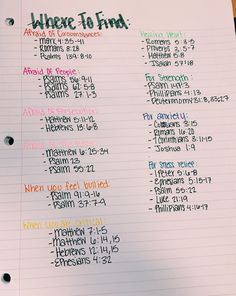 Where To Find:
Afraid of Circumstances:
- Mark 4:35-41
- Romans 8:28
- Psalms 139:8-10
Afraid of People:
- Psalms 56:9-11
- Psalms 62:5-8
- Psalms 27:1-3
- Matthew 5:11-12
- Hebrews 13:6-8
- Matthew 6:25-34
- Psalm 23
- Psalm 55:22
When you feel bullied:
- Psalm 91:9-16
- Psalm 37:7-9
When you are critical:
- Matthew 7:1-5
- Matthew 6:14,15
- Hebrews 12:14,15
- Ephesians 4:32
Healing Heart:
- Romans 5:3-5
- Proverbs 3:5-7
- Matthew 5:8
- Isaiah 57:18
For Strength:
- Psalm 147:3
- Philippians 4:13
- Deuteronomy 31:8, 33:27
For anxiety:
- Colossians 3:15
- Romans 16:20
- Joshua 1:9
For stress relief:
- 1 Peter 5:6-8
- Ephesians 3:15-17
- Psalm 55:22
- Luke 21:19
- Philippians 4:16-17